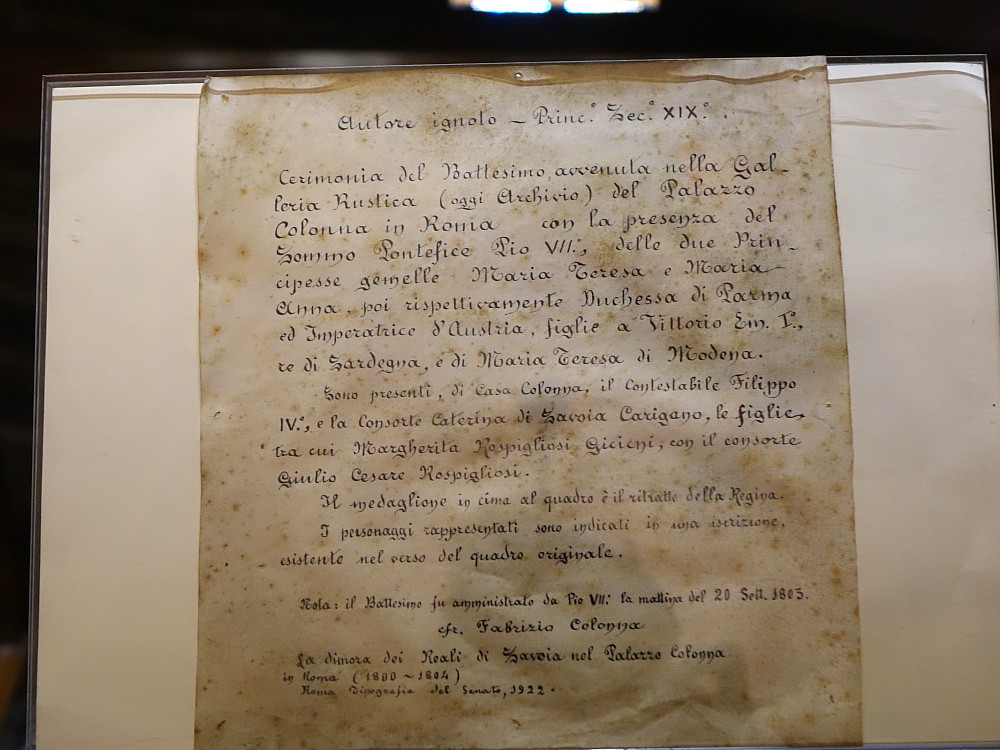 Autore ignoto – Princ.° Sec.° XIX.° .
Cerimonia del Battesimo, avvenuta nella Gal-
leria Rustica (oggi Archivio) del Palazzo
Colonna in Roma con la presenza del
Sommo Pontefice Pio VII.°, delle due Prin-
cipesse gemelle Maria Teresa e Maria
Anna, poi rispettivamente Duchessa di Parma
ed Imperatrice d'Austria, figlie a Vittorio Em. I.°,
re di Sardegna, e di Maria Teresa di Modena.
Sono presenti, di Casa Colonna, il Contestabile Filippo
IV.°, e la Consorte Caterina di Savoia Carigano, le figlie,
tra cui Margherita Rospigliosi Gicichi, con il consorte
Giulio Cesare Rospigliosi.
Il medaglione in cima al quadro è il ritratto della Regina.
I personaggi rappresentati sono indicati in una iscrizione,
esistente nel verso del quadro originale.
Nota: il Battesimo fu amministrato da Pio VII.° la mattina del 20 Sett. 1803.
cfr. Fabrizio Colonna
La dimora dei Reali di Savoia nel Palazzo Colonna
in Roma (1800 ~ 1804)
Roma Tipografia del Senato, 1922.